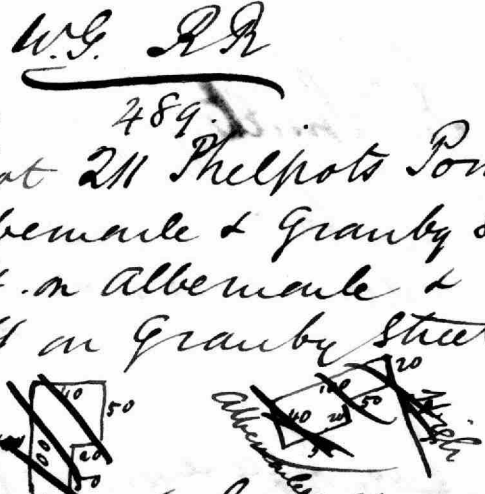 W.G. RR
489.
ot 211 Phelpots Pon
bemarle & Granby S
. on Albemarle &
on Granby Street
40 50
100 20 50
100 20
40 50 20
Albemarle High